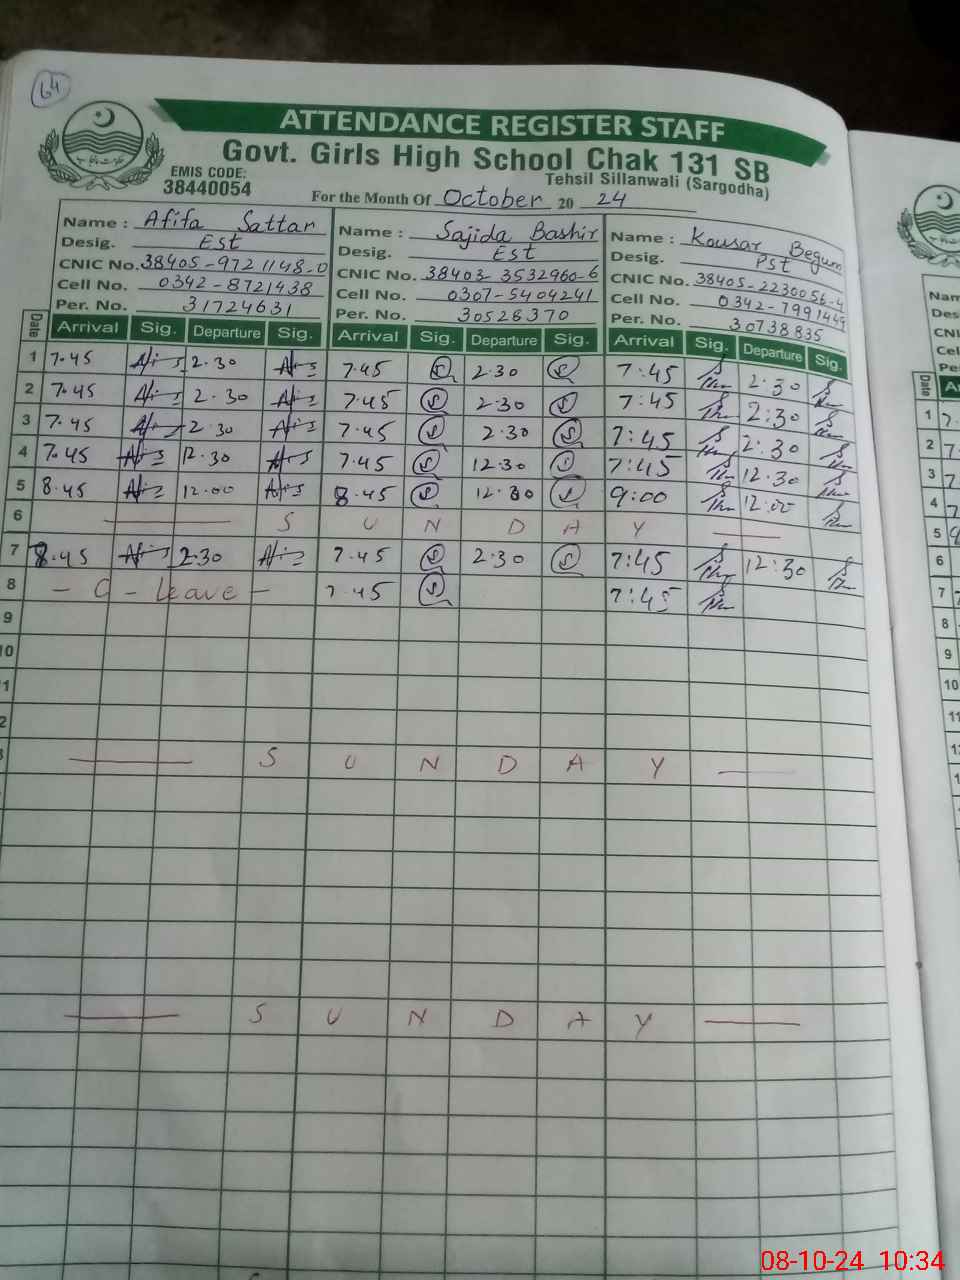 64
ATTENDANCE REGISTER STAFF
Govt. Girls High School Chak 131 SB
EMIS CODE:
38440054
Tehsil Sillanwali (Sargodha)
For the Month Of October 20 24
Name : Afifa Sattar
Desig. Est
CNIC No. 38405-9721148-0
Cell No. 0342-8721438
Per. No. 31724631
Name : Sajida Bashir
Desig. Est
CNIC No. 38403-3532960-6
Cell No. 0307-5404241
Per. No. 30526370
Name : Kousar Begum
Desig. Pst
CNIC No. 38405-2230056-4
Cell No. 0342-7991449
Per. No. 30738835
Date Arrival Sig. Departure Sig. Arrival Sig. Departure Sig. Arrival Sig. Departure Sig.
1 7.45 2.30 7.45 2.30 7:45 2:30
2 7.45 2.30 7.45 2.30 7:45 2:30
3 7.45 2.30 7.45 2.30 7:45 2:30
4 7.45 12.30 7.45 12.30 7:45 12:30
5 8.45 12.00 8.45 12.30 9:00 12:00
6 S U N D A Y
7 8.45 2.30 7.45 2.30 7:45 12:30
8 - C - Leave - 7.45 7:45
9
10
S U N D A Y
S U N D A Y
Date
1
2
3
4
5
6
7
8
9
10
11
08-10-24 10:34